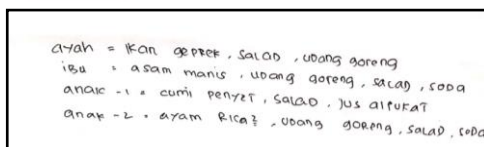 ayah = Ikan geprek, salad, udang goreng
ibu = asam manis, udang goreng, salad, soda
anak-1 = cumi penyet, salad, jus alpukat
anak-2 = ayam Rica2, udang goreng, salad, soda